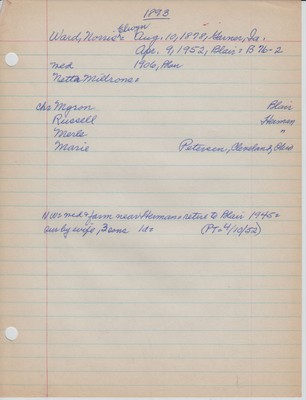 1893
Elwyn
Ward, Norris Aug. 10, 1878, Garner, Ia.
Apr. 9, 1952, Blair: B 76-2
med 1906,
Netta Millrones
chr Myron Blair
Russell Herman
Merle "
Marie Peterson, Cleveland, Ohio
N wr med & farm near Herman, retire to Blair 1945
sur by wife, 3 sons 1 da (PT-4/10/52)